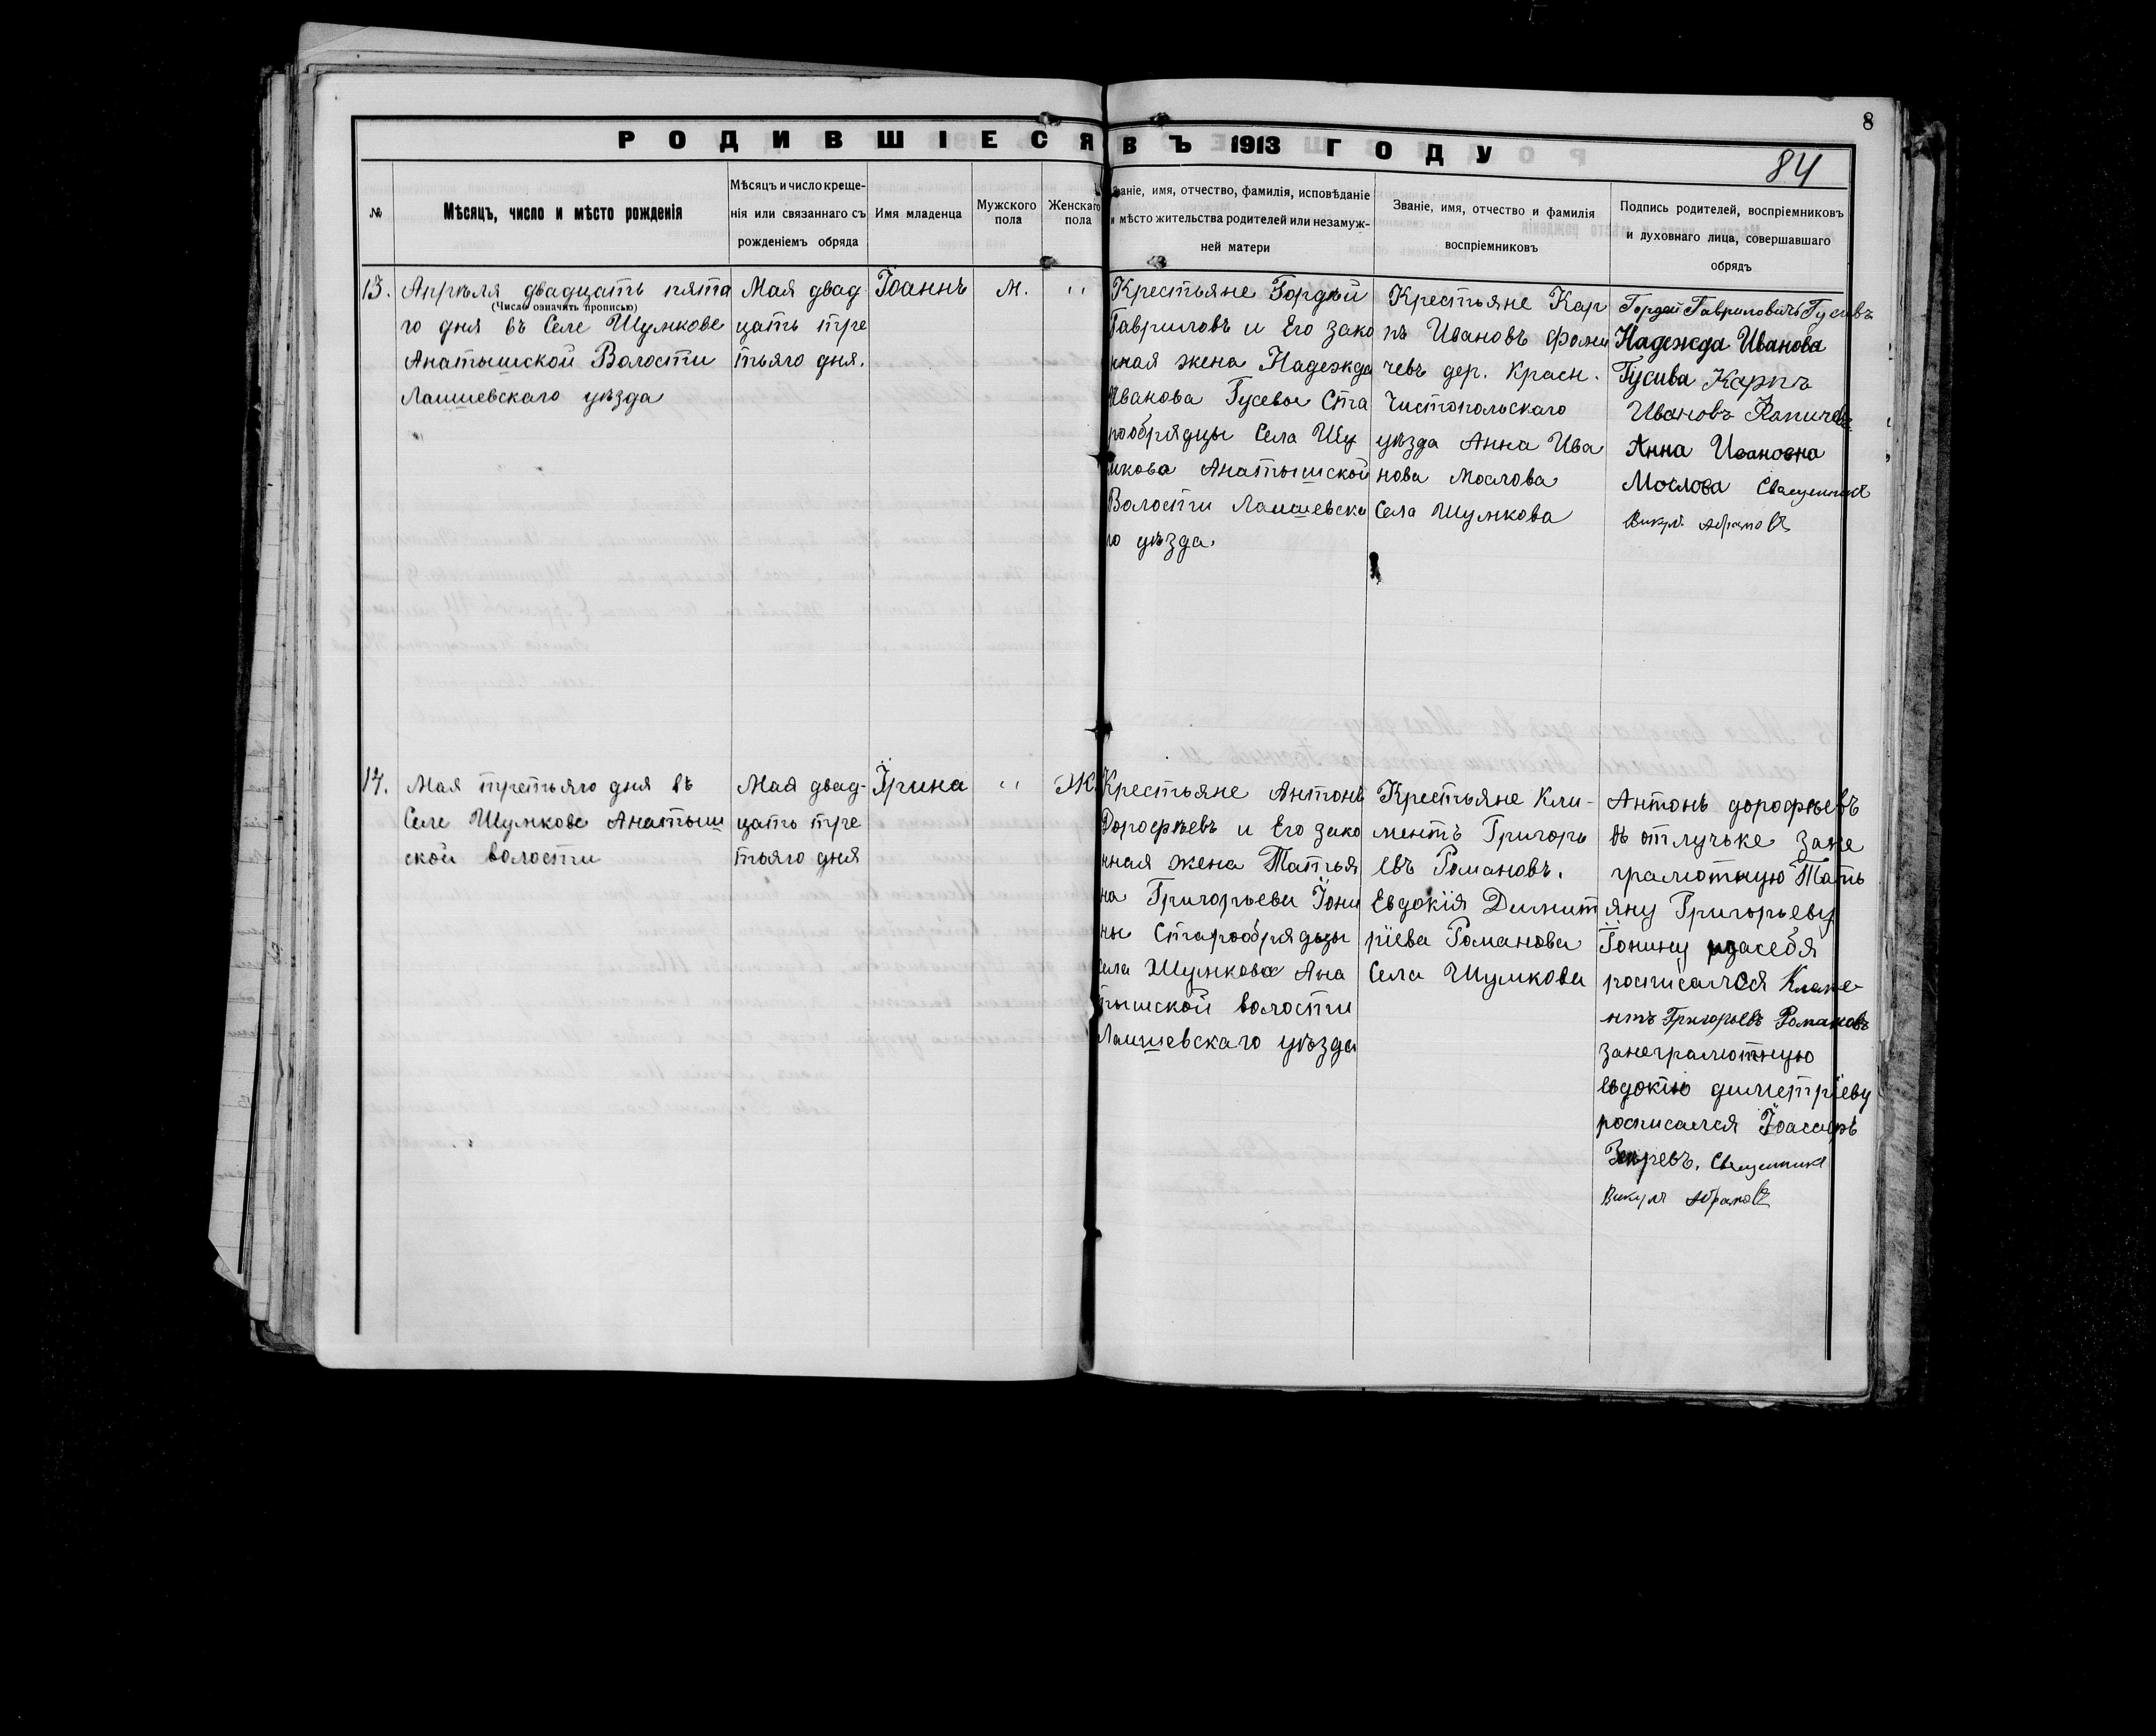 8
84
РОДИВШІЕСЯ ВЪ 1913 ГОДУ
№
Мѣсяцъ, число и мѣсто рожденія
Мѣсяцъ и число креще-
нія или связаннаго съ
рожденіемъ обряда
Имя младенца
Мужского
пола
Женскаго
пола
Званіе, имя, отчество, фамилія, исповѣданіе
и мѣсто жительства родителей или незамуж-
ней матери
Званіе, имя, отчество и фамилія
воспріемниковъ
Подпись родителей, воспріемниковъ
и духовнаго лица, совершавшаго
обрядъ
13.
Апрѣля двадцать пята
(Число означить прописью)
го дня въ Селе Шумкове
Анатышской Волости
Лаишевскаго уѣзда
Мая двад
цать тре
тьяго дня.
Іоаннъ
М.
"
Крестьяне Гордѣй
Гавриловъ и Его зако
нная жена Надежда
Иванова Гусевы Ста
рообрядцы Села Шу
мкова Анатышской
Волости Лаишевска
го уѣзда.
Крестьяне Кар
пъ Ивановъ
чевъ дер. Красн.
Чистопольскаго
уѣзда Анна Ива
нова Мослова
Села Шумкова
Гордей Гавриловичъ Гусивъ
Надежда Иванова
Гусива Карпъ
Ивановъ
Анна Ивановна
Мослова Священникъ
Викул Абрамовъ
14.
Мая третьяго дня въ
Селе Шумкове Анатыш
ской волости
Мая двад-
цать тре
тьяго дня
Ірина
"
Ж.
Крестьяне Антонъ
Дорофѣевъ и Его зако
нная жена Татья
на Григорьева Іони
ны Старообрядцы
Села Шумкова Ана
тышской волости
Лаишевскаго уѣзда
Крестьяне Кли-
ментъ Григорь
евъ Романовъ.
Евдокія Димит
ріева Романова
Села Шумкова
Антонъ дорофѣевъ
въ отлучьке зане
грамотную Тать
яну Григорьеву
Іонину изасебя
росписался Климе-
нтъ Григорьевъ Романовъ
занеграмотную
евдокію диметріеву
росписался Іоасафъ
Священникъ
Викулъ Абрамовъ